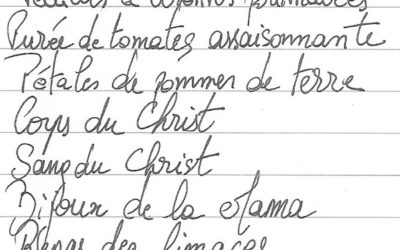 à primaires
Purée de tomates assaisonnante
Pétales de pommes de terre
Corps du Christ
Sang du Christ
Bijoux de la Mama
des limaces